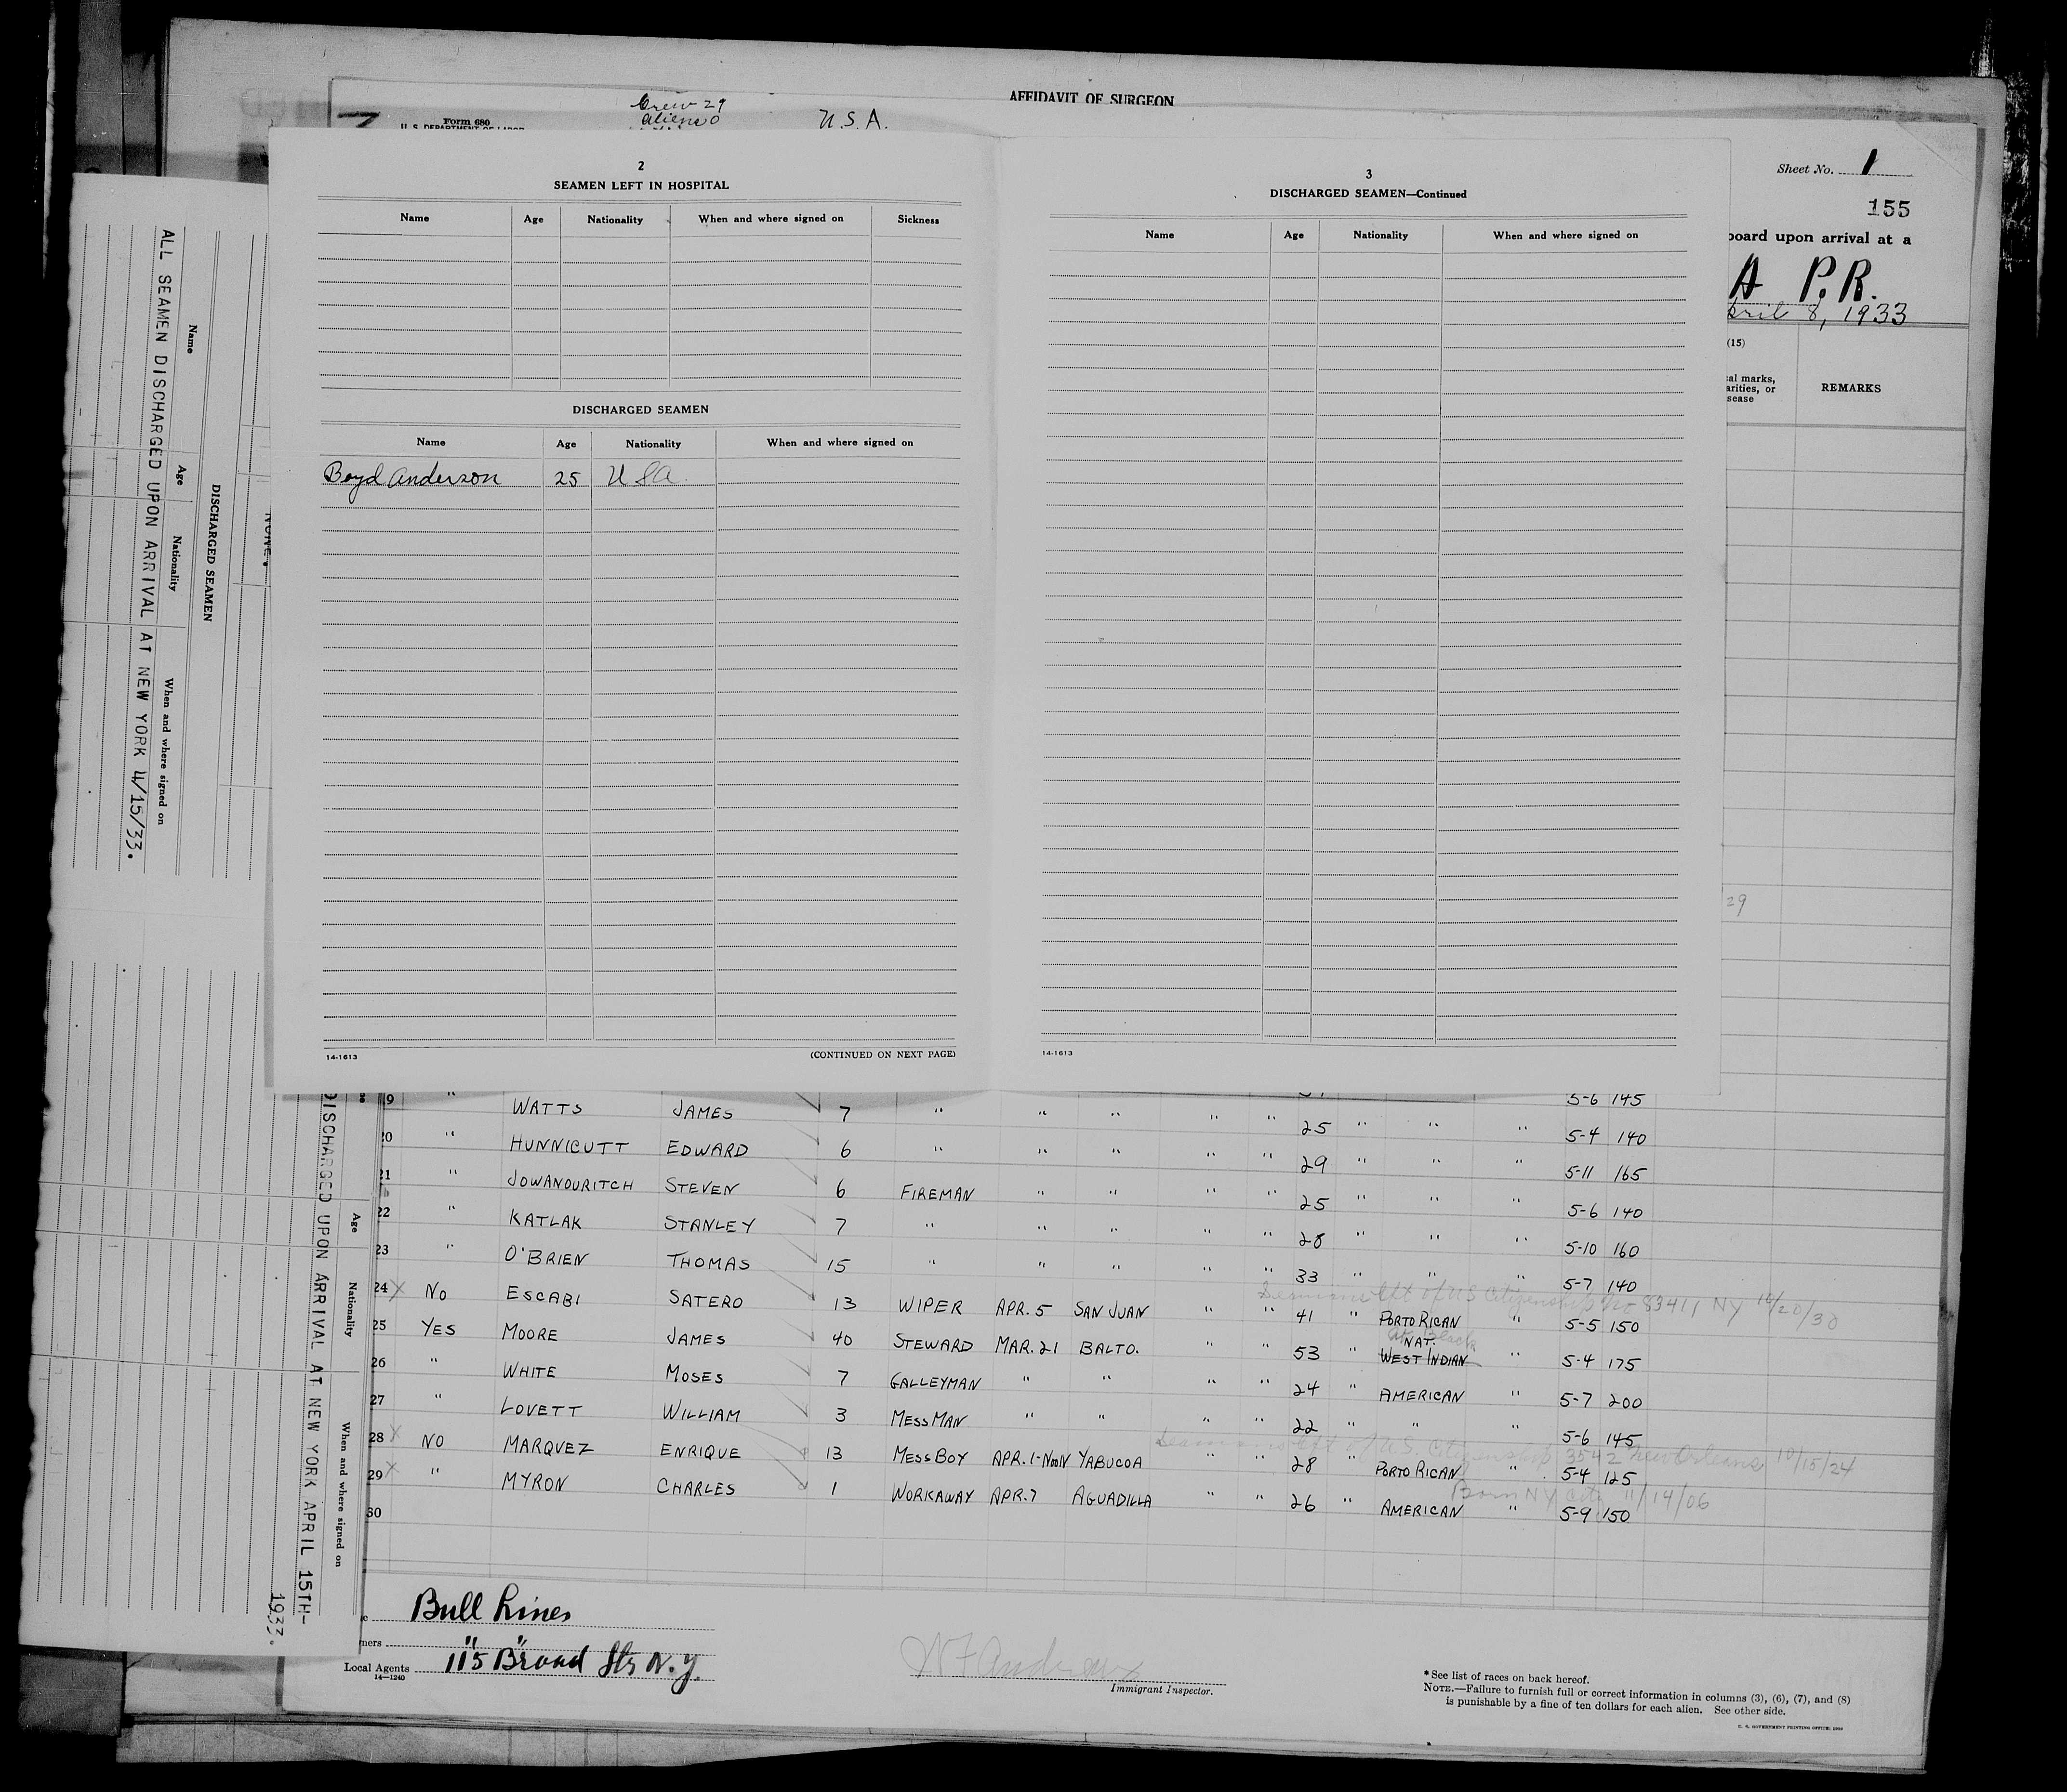 AFFIDAVIT OF SURGEON
Crew 29
Aliens 0
U.S.A.
Form 680
U. S. DEPARTMENT OF LABOR
Sheet No. 1
155
board upon arrival at a
A P.R.
April 8, 1933
(15)
REMARKS
29
2
SEAMEN LEFT IN HOSPITAL
Name Age Nationality When and where signed on Sickness
DISCHARGED SEAMEN
Name Age Nationality When and where signed on
Boyd Anderson 25 USA.
14-1613 (CONTINUED ON NEXT PAGE)
3
DISCHARGED SEAMEN—Continued
Name Age Nationality When and where signed on
14-1613
NONE.
DISCHARGED SEAMEN
Name Age Nationality When and where signed on
ALL SEAMEN DISCHARGED UPON ARRIVAL AT NEW YORK 4/15/33.
Age Nationality When and where signed on
DISCHARGED UPON ARRIVAL AT NEW YORK APRIL 15TH-
1933.
19 " WATTS JAMES 7 " " " " " 25 " " " 5-6 145
20 " HUNNICUTT EDWARD 6 " " " " " 29 " " " 5-4 140
21 " JOWANOURITCH STEVEN 6 FIREMAN " " " " 25 " " " 5-11 165
22 " KATLAK STANLEY 7 " " " " " 28 " " " 5-6 140
23 " O'BRIEN THOMAS 15 " " " " " 33 " " " 5-10 160
5-7 140
Seamans cft of US Citizenship No 83411 NY 10/20/30
24 X NO ESCABI SATERO 13 WIPER APR. 5 SAN JUAN " " 41 " PORTO RICAN " 5-5 150
Black
NAT.
25 YES MOORE JAMES 40 STEWARD MAR. 21 BALTO. " " 53 " WEST INDIAN " 5-4 175
26 " WHITE MOSES 7 GALLEYMAN " " " " 24 " AMERICAN " 5-7 200
27 " LOVETT WILLIAM 3 MESSMAN " " " " 22 " " " 5-6 145
Seamans cft of U.S. Citizenship 3542 New Orleans 10/15/24
28 X NO MARQVEZ ENRIQUE 13 MESSBOY APR. 1-NOON YABUCOA " " 28 " PORTO RICAN " 5-4 125
Born NY City 11/14/06
29 X " MYRON CHARLES 1 WORKAWAY APR. 7 AGUADILLA " " 26 " AMERICAN " 5-9 150
30
Bull Lines
" "
Local Agents 115 Broad Str N.Y.
14—1240
W F Andrews
Immigrant Inspector.
* See list of races on back hereof.
NOTE.—Failure to furnish full or correct information in columns (3), (6), (7), and (8)
is punishable by a fine of ten dollars for each alien. See other side.